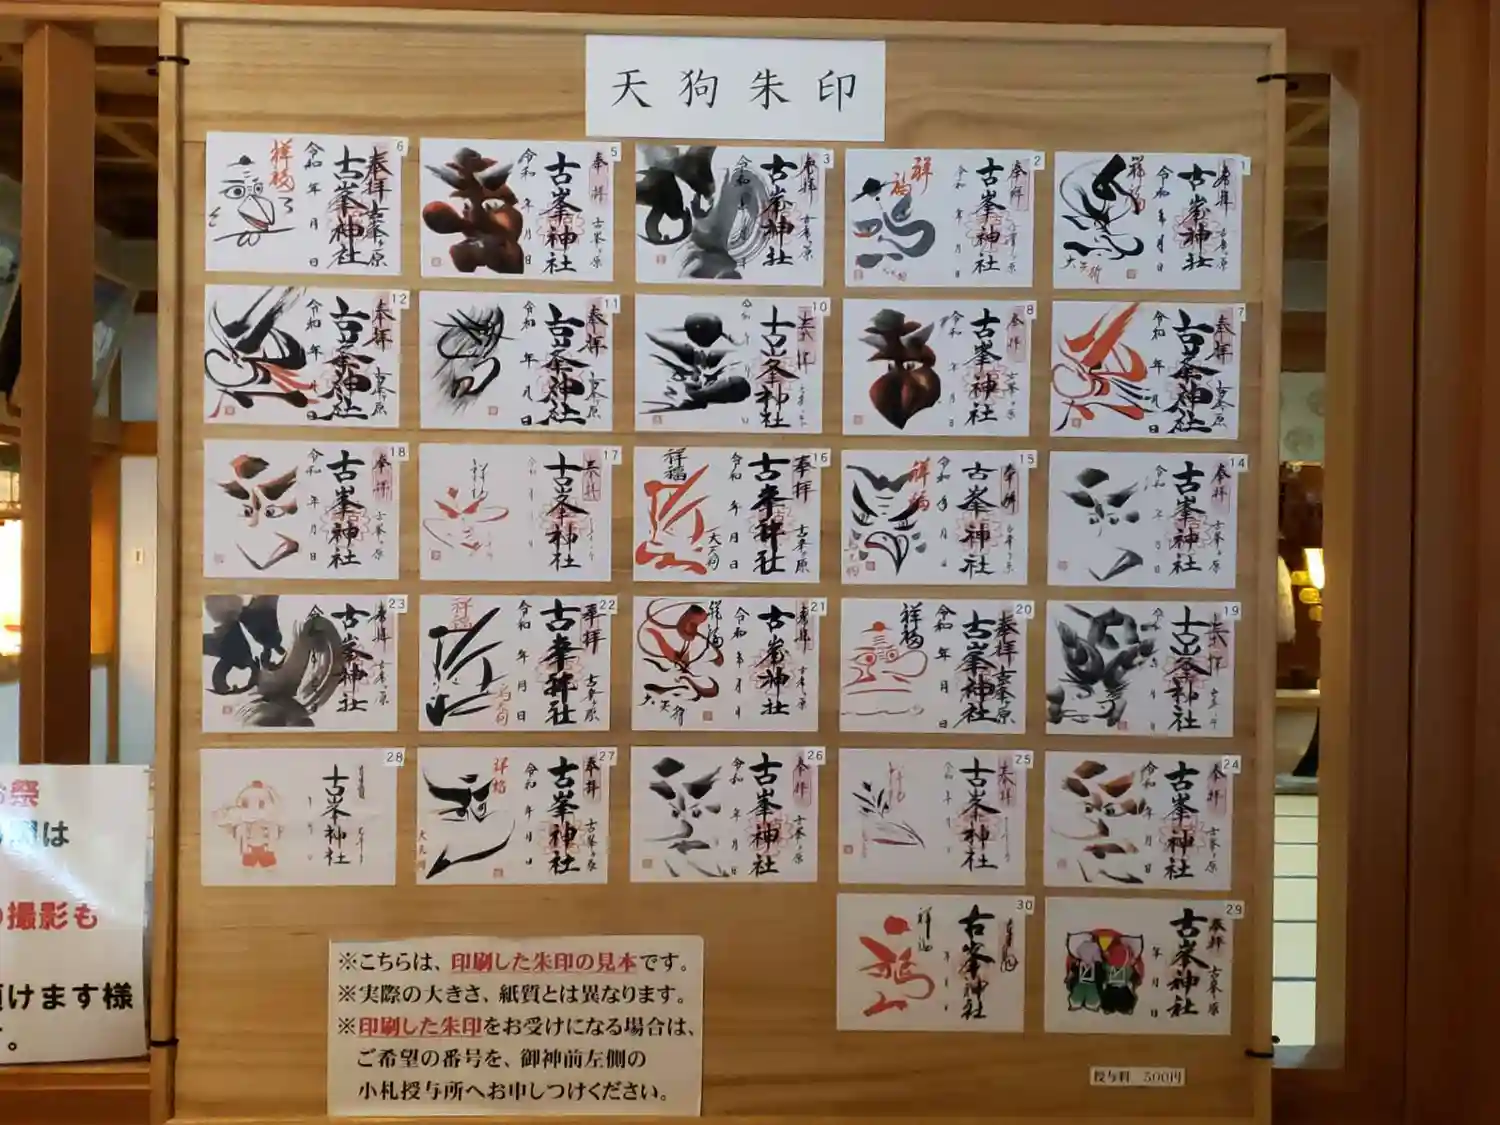 天狗朱印
1
奉拝
古峯神社
古峯ヶ原
令和 年 月 日
祥福
大天狗
2
奉拝
古峯神社
古峯ヶ原
令和 年 月 日
祥福
3
奉拝
古峯神社
古峯ヶ原
令和
5
奉拝
古峯神社
古峯ヶ原
令和 年 月 日
6
奉拝
古峯ヶ原
古峯神社
令和 年 月 日
祥福
7
奉拝
古峯ヶ原
古峯神社
令和 年 月 日
8
奉拝
古峯神社
古峯ヶ原
令和 年 月 日
10
奉拝
古峯神社
11
奉拝
古峯ヶ原
古峯神社
令和 年 月 日
12
奉拝
古峯ヶ原
古峯神社
令和 年 月 日
14
奉拝
古峯神社
古峯ヶ原
令和 年 月 日
15
奉拝
古峯神社
古峯ヶ原
令和 年 月 日
祥福
16
奉拝
古峯神社
古峯ヶ原
令和 年 月 日
祥福
大天狗
17
奉拝
古峯神社
祥福
18
奉拝
古峯神社
古峯ヶ原
令和 年 月 日
19
奉拝
古峯神社
20
奉拝
古峯ヶ原
古峯神社
令和 年 月 日
祥福
21
奉拝
古峯神社
古峯ヶ原
令和 年 月
祥福
大天狗
22
奉拝
古峯神社
古峯ヶ原
令和 年 月 日
祥福
23
奉拝
古峯神社
古峯ヶ原
24
奉拝
古峯神社
古峯ヶ原
令和 年 月 日
25
奉拝
古峯神社
26
奉拝
古峯神社
古峯ヶ原
令和 年 月 日
27
奉拝
古峯神社
古峯ヶ原
令和 年 月 日
祥福
大天狗
28
古峯神社
29
奉拝
古峯神社
古峯ヶ原
年 月 日
30
古峯神社
祥福
※こちらは、印刷した朱印の見本です。
※実際の大きさ、紙質とは異なります。
※印刷した朱印をお受けになる場合は、
ご希望の番号を、御神前左側の
小札授与所へお申しつけください。
授与料 500円
祭
は
撮影も
けます様
。